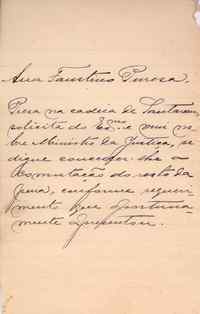 Ana Faustino Pimosa.
Presa na cadeia de Santarem,
solicita do Exmo e nobre
Ministro da Justiça, se
digne conceder-lhe a
comutação do resto da
pena, conforme requeri-
mento que oportuna-
mente apresentou.